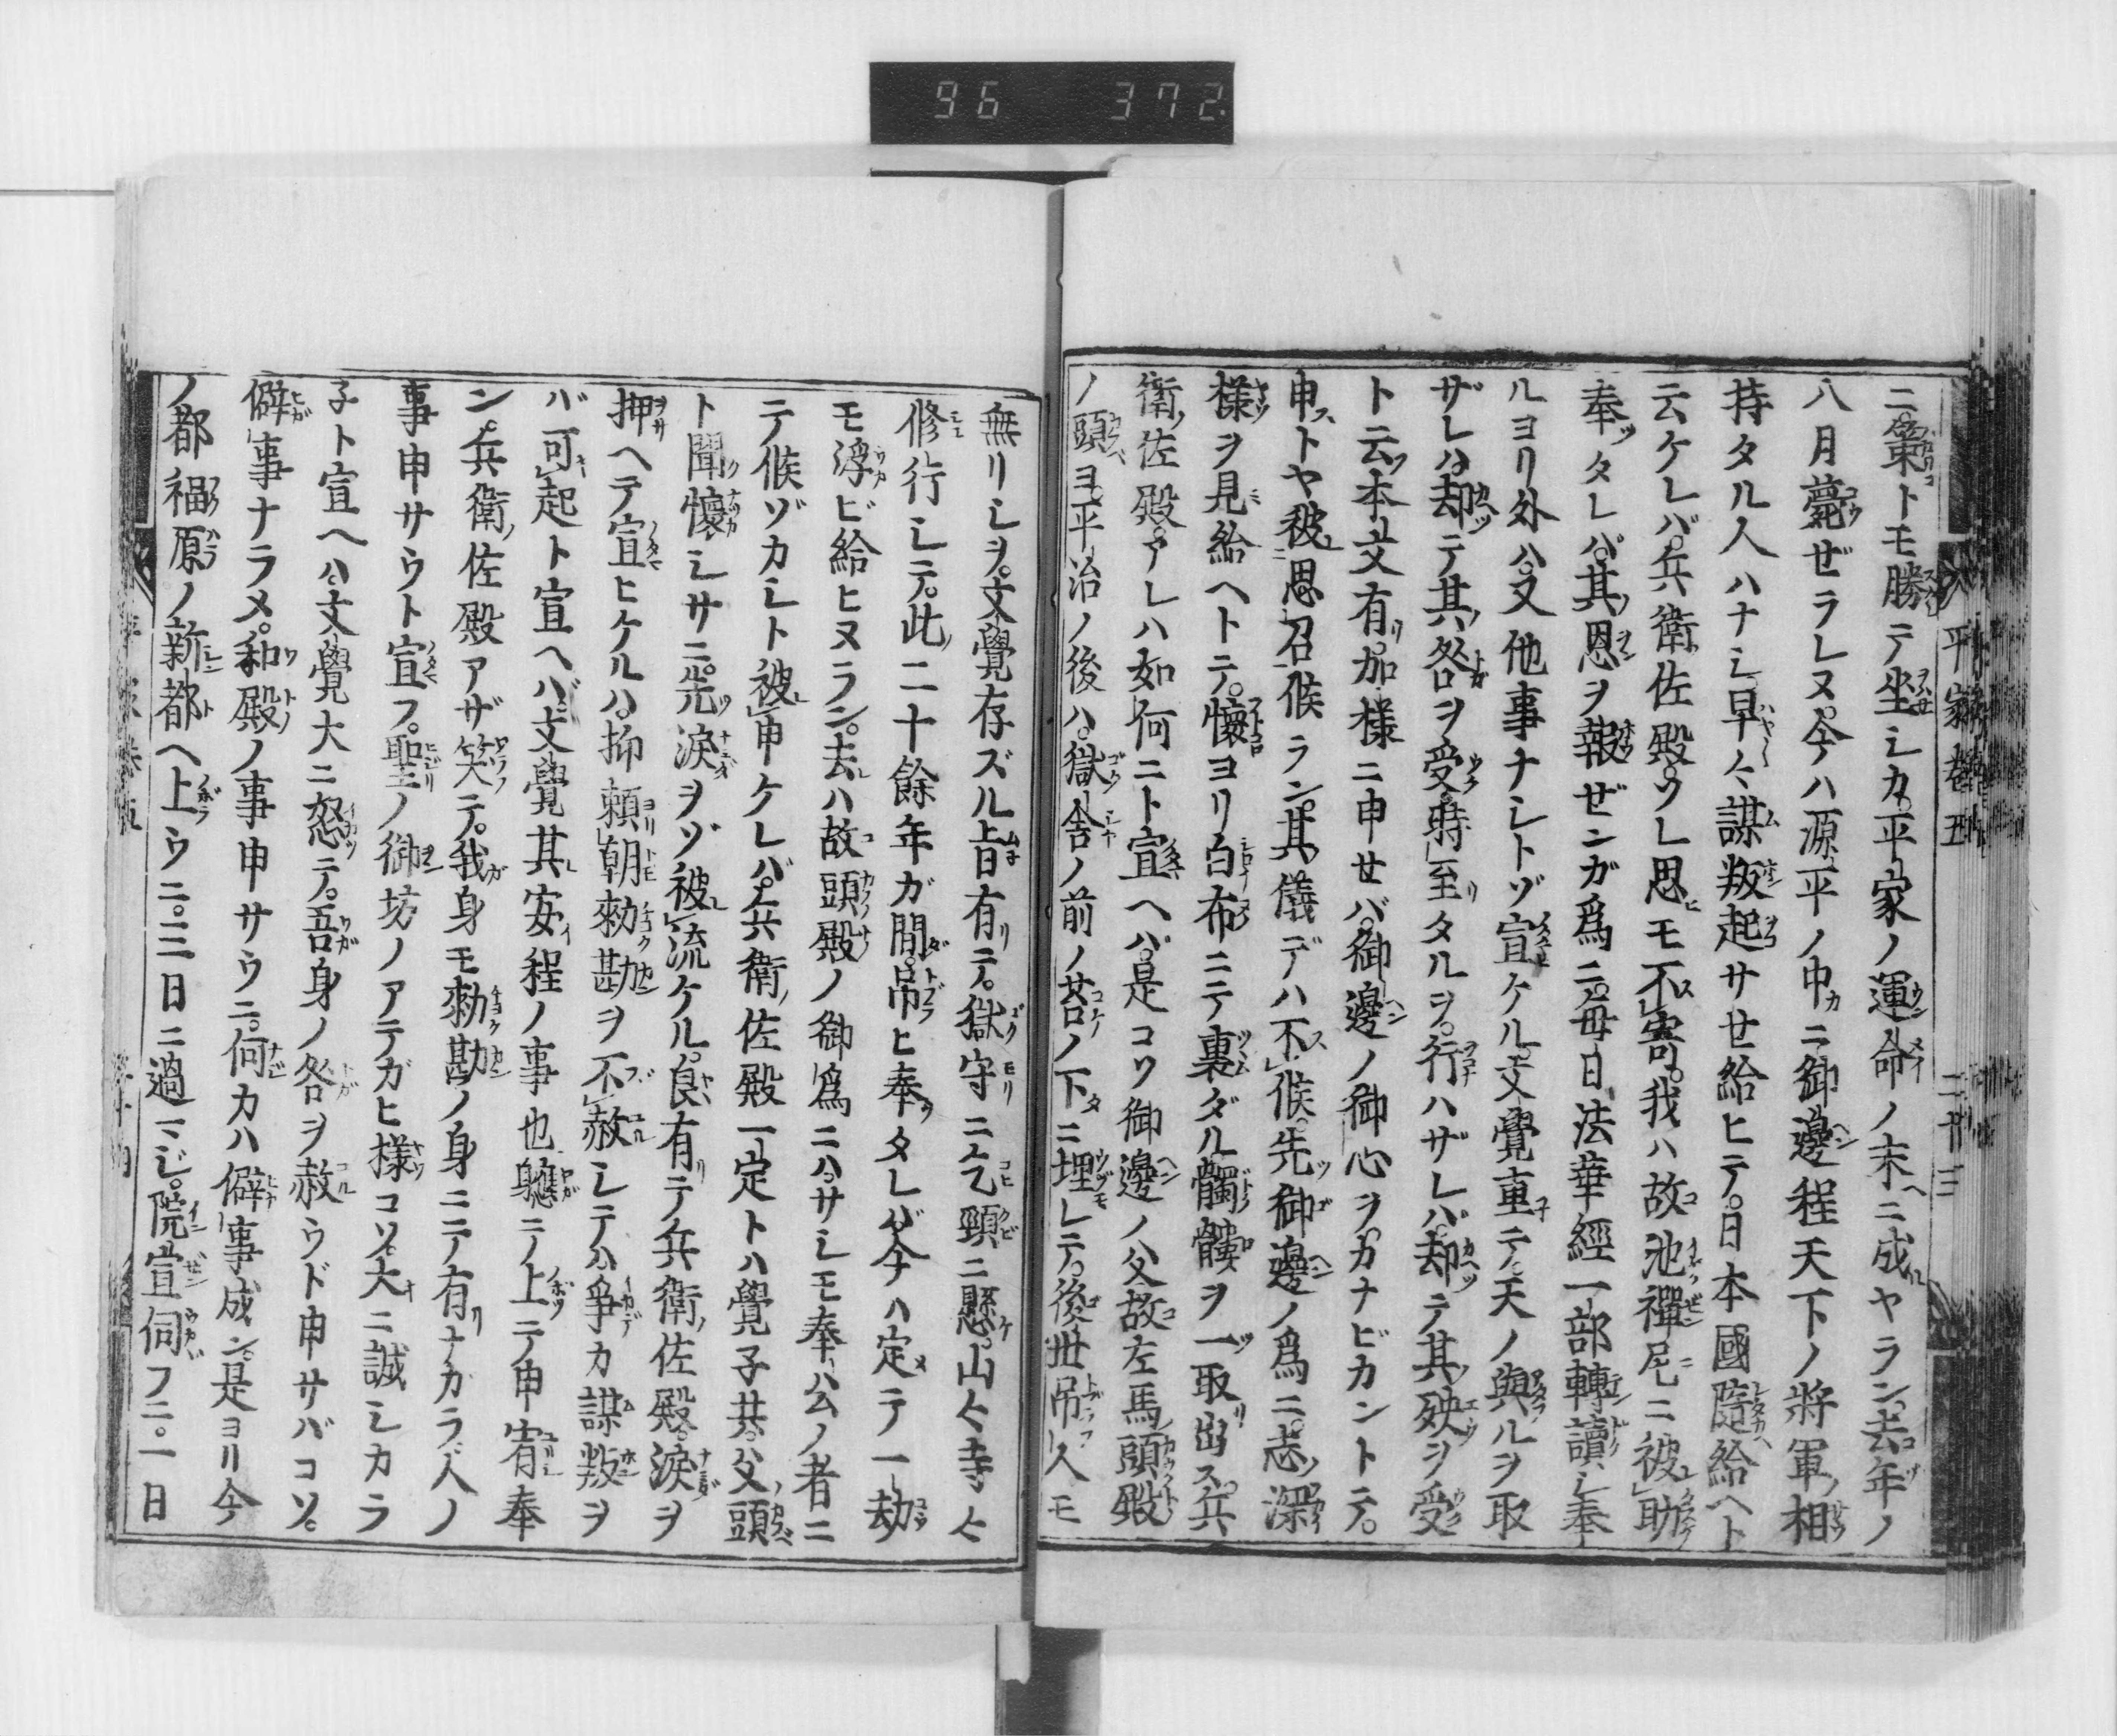 96 372
平家巻五 二十三
ニ。策トモ勝テ坐シカ。平家ノ運命ノ末ニ成ヤラン。去年ノ
八月薨ゼラレヌ。今ハ源平ノ中ニ御邊程天下ノ將軍ノ相
持タル人ハナシ。早々謀叛起サセ給ヒテ。日本國隨給ヘト
云ケレバ。兵衛佐殿。ウレ思モ不寄。我ハ故池禪尼ニ被助
奉タレバ。其恩ヲ報ゼンガ爲ニ。毎日法華經一部轉讀シ奉
ルヨリ外ハ。又他事ナシトゾ宣ケル。文覺重テ。天ノ與ルヲ取
ザレハ却テ其咎ヲ受。時至タルヲ。行ハザレバ。却テ其殃ヲ受
ト云本文有。加樣ニ申セバ。御邊ノ御心ヲ。カナビカントテ。
申トヤ被思召候ラン。其儀デハ不候。先御邊ノ爲ニ。志ノ深
樣ヲ見給ヘトテ。懷ヨリ白布ニテ裹ダル髑髏ヲ一取出ス。兵
衛佐殿。アレハ如何ニト宣ヘバ。是コソ御邊ノ父故左馬頭殿
ノ頭ヨ。平治ノ後ハ。獄舎ノ前ノ苔ノ下ニ埋レテ。後世弔人モ
無リシヲ。文覺存ズル旨有テ。獄守ニ乞。頸ニ懸。山々寺々
修行シテ。此二十餘年ガ間。吊ヒ奉タレバ。今ハ定テ一劫
モ浮ビ給ヒヌラン。去ハ故頭殿ノ御爲ニハ。サシモ奉公ノ者ニ
テ候ゾカシト被申ケレバ。兵衛佐殿一定トハ覺子共。父ノ頭
ト聞懷シサニ。先淚ヲゾ被流ケル。良有テ兵衛佐殿。淚ヲ
押ヘテ宣ヒケルハ。抑賴朝勅勘ヲ不赦シテハ。爭カ謀叛ヲ
バ可起ト宣ヘバ。文覺其安程ノ事也。軈テ上テ申宥奉
ン。兵衛佐殿アザ笑テ。我身モ勅勘ノ身ニテ有ナカラ。人ノ
事申サウト宣フ。聖ノ御坊ノアテガヒ樣コソ。大ニ誠シカラ
子ト宣ヘハ。文覺大ニ怒テ。吾身ノ咎ヲ赦ウド申サバコソ。
僻事ナラメ。和殿ノ事申サウニ。何カハ僻事成ン。是ヨリ今
ノ都福原ノ新都ヘ上ウニ。三日ニ過マジ。院宣伺フニ。一日